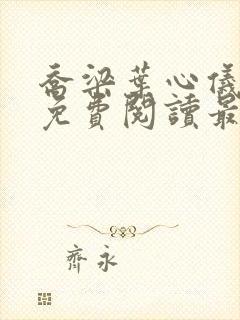 喬梁葉心儀
免費閱讀最
齊永